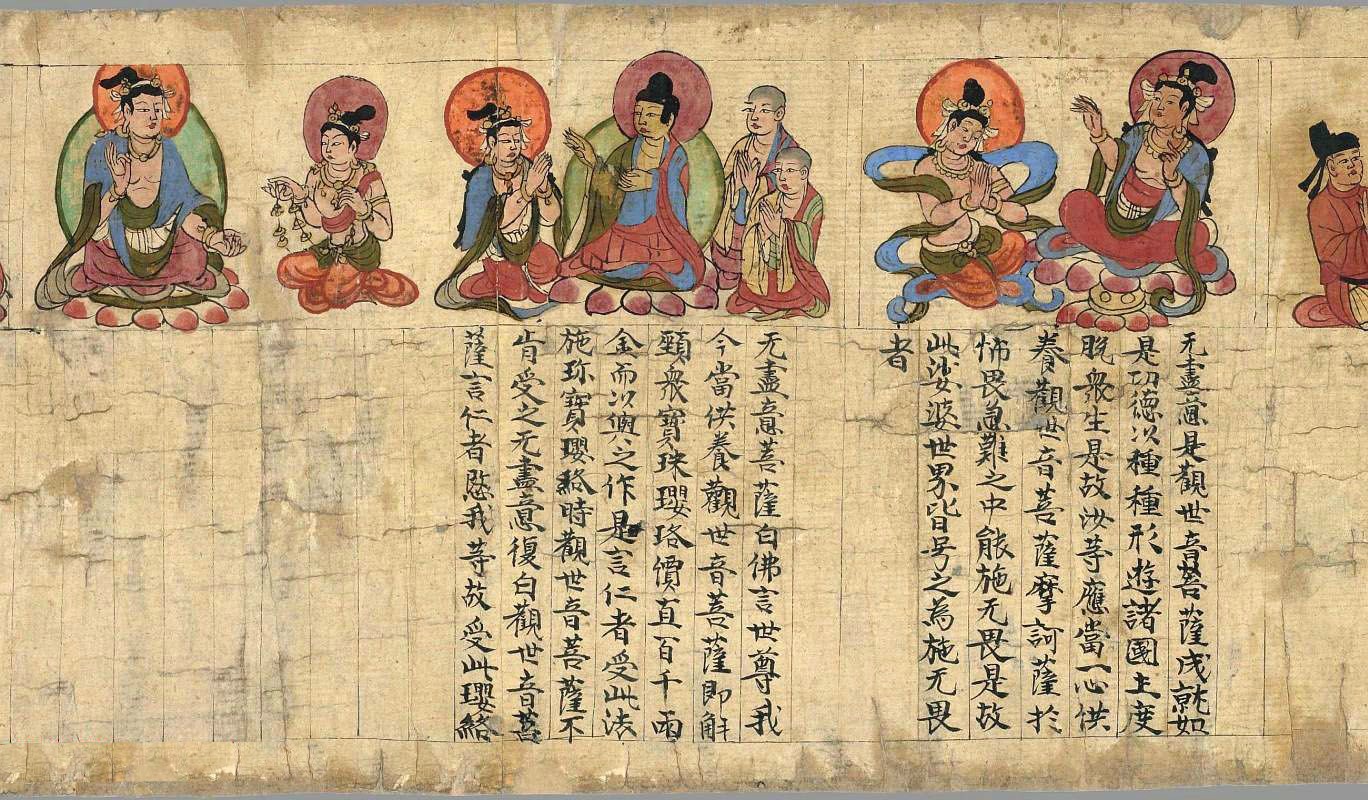 无盡意是觀世音菩薩成就如
是功德以種種形遊諸國土度
脫衆生是故汝等應當一心供
養觀世音菩薩摩訶薩於
怖畏急難之中能施无畏是故
此娑婆世界皆号之為施无畏
者
无盡意菩薩白佛言世尊我
今當供養觀世音菩薩即解
頸衆寶珠瓔珞價直百千兩
金而以與之作是言仁者受此法
施珎寶瓔珞時觀世音菩薩不
肯受之无盡意復白觀世音菩
薩言仁者愍我等故受此瓔珞